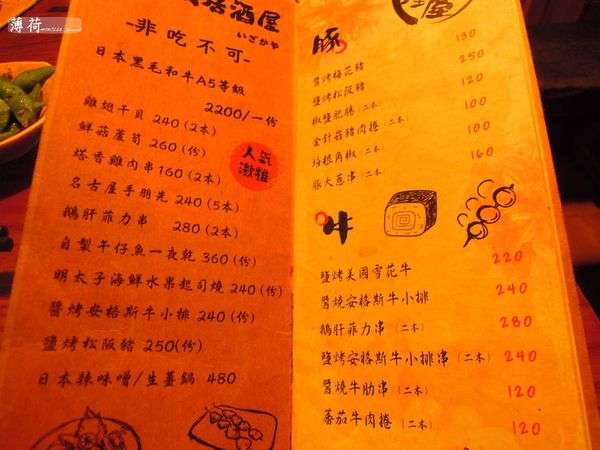 薄荷
居酒屋
いざかや
-非吃不可-
日本黑毛和牛A5等級
2200/一份
雞翅干貝 240(2本)
鮮菇蘆筍 260(份)
塔香雞肉串160(2本)
人氣
激推
名古屋手朋先 240(5本)
鵝肝菲力串 280(2本)
自製午仔魚一夜乾 360(份)
明太子海鮮水果起司燒 240(份)
醬烤安格斯牛小排 240(份)
鹽烤松阪豬 250(份)
日本辣味噌/生薑鍋 480
屋
豚
醬烤梅花豬 130
鹽烤松阪豬 250
椒鹽肥腸(二本) 120
金針菇豬肉捲(二本) 100
培根角椒(二本) 100
豚大蔥串(二本) 160
牛
鹽烤美國雪花牛 220
醬燒安格斯牛小排 240
鵝肝菲力串(二本) 280
鹽烤安格斯牛小排串(二本) 240
醬燒牛肋串(二本) 120
蕃茄牛肉捲(二本) 120